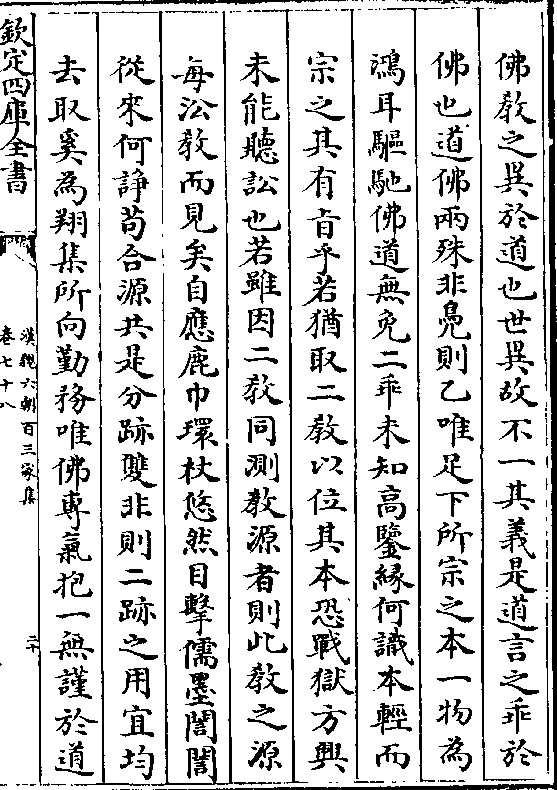 佛教之異於道也世異故不一其義是道言之乖於
佛也道佛兩殊非鳧則乙唯足下所宗之本一物為
鴻耳驅馳佛道無免二乖未知高鑒緣何識本輕而
宗之其有旨乎若猶取二教以位其本恐戰獄方興
未能聽訟也若雖因二教同測教源者則此教之源
每沿教而見矣自應鹿巾環杖悠然目擊儒墨誾誾
從來何諍苟合源共是分跡雙非則二跡之用宜均
去取奚為翔集所向勤務唯佛專氣抱一無謹於道
欽定四庫全書
漢魏六朝百三家集
卷七十八
二十